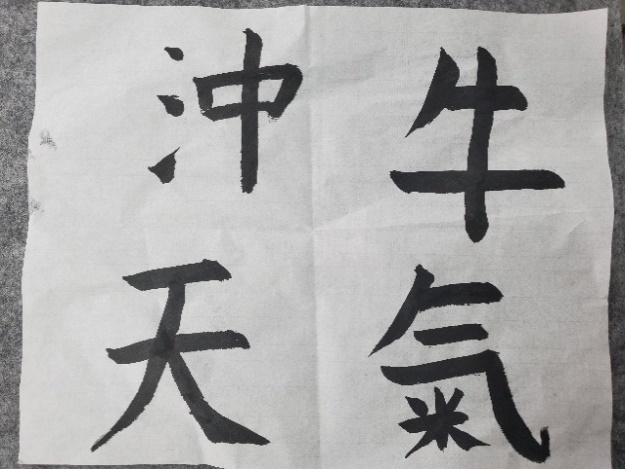 牛氣
沖天